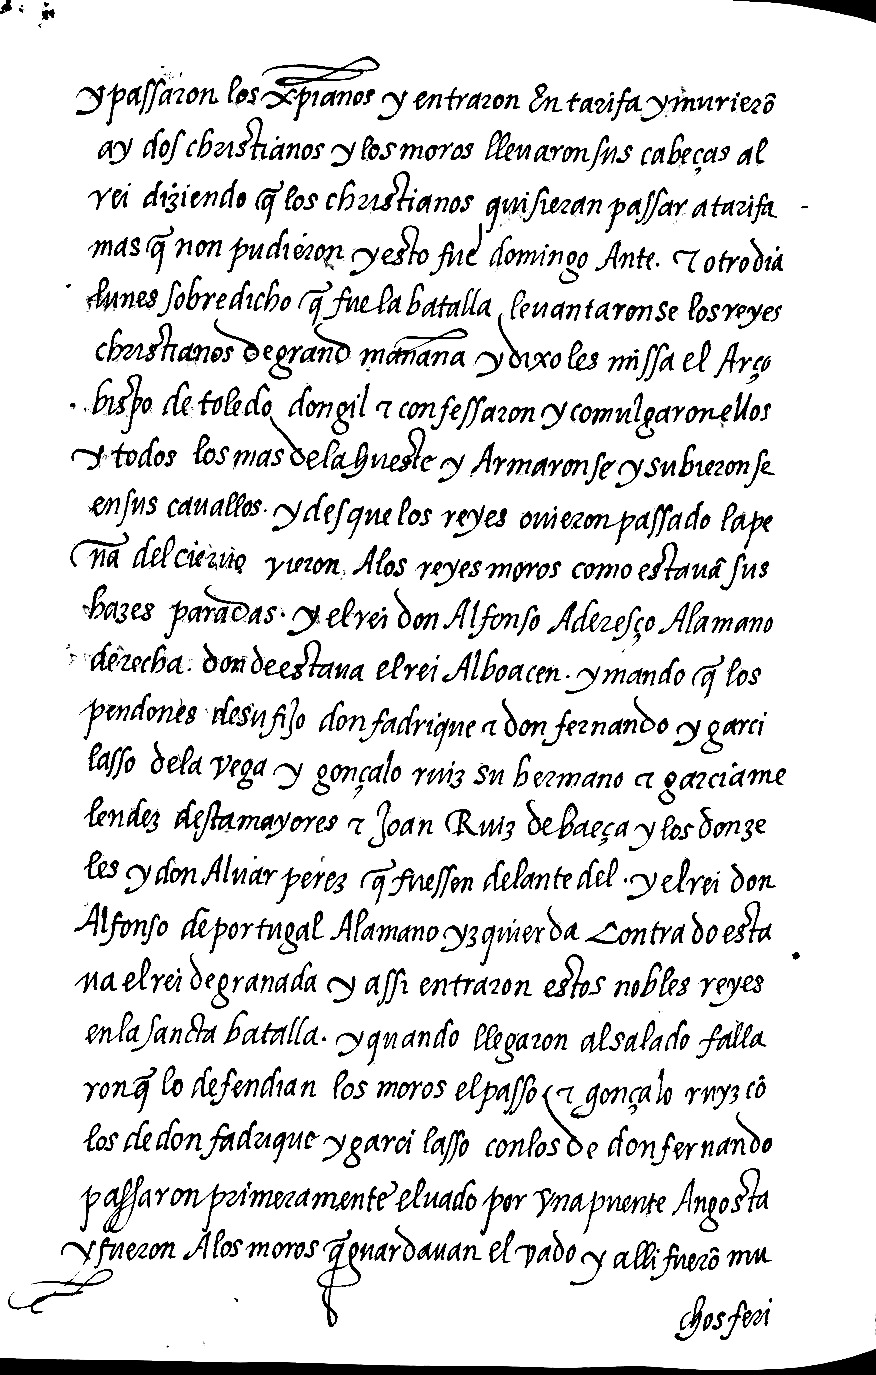 y passaron los xp̃ianos y entraron En tarifa y murierõ
ay dos christianos y los moros lleuaron sus cabeças al
rei diziendo q̃ los christianos quisieran passar a tarifa
mas q̃ non pudieron y esto fue domingo Ante. τ otro dia
lunes sobre dicho q̃ fue la batalla leuantaronse los reyes
christianos de grand mañana y dixo les missa el Arço
bispo de toledo don gil τ confessaron y comulgaron ellos
y todos los mas de la hueste y Armaronse y subieronse
en sus cauallos. y desque los reyes ouieron passado la pe
ña del cieruo vieron Alos reyes moros como estauã sus
hazes paradas. y el rei don Alfonso Aderesço Ala mano
derecha. donde estaua el rei Alboacen. y mando q̃ los
pendones de su fijo don fadrique τ don fernando y garci
lasso dela vega y gonçalo ruiz su hermano τ garcia me
lendez destamayores τ Joan Ruiz de baeça y los donze
les y don Aluar perez q̃ fuessen delante del. y el rei don
Alfonso de portugal Ala mano yzquierda Contra do esta
ua el rei de granada y assi entraron estos nobles reyes
en la sancta batalla. y quando llegaron al salado falla
ron q̃ lo defendian los moros el passo τ gonçalo ruyz cõ
los de don fadrique y garci lasso con los de don fernando
passaron primeramente el uado por vna puente Angosta
y fueron Alos moros q̃ guardauan el vado y alli fuerõ mu
chos feri